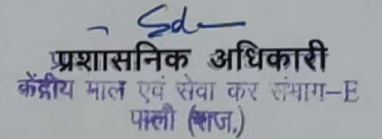 Sd-
प्रशासनिक अधिकारी
केंद्रीय माल एवं सेवा कर संभाग-E
पाली (राज.)